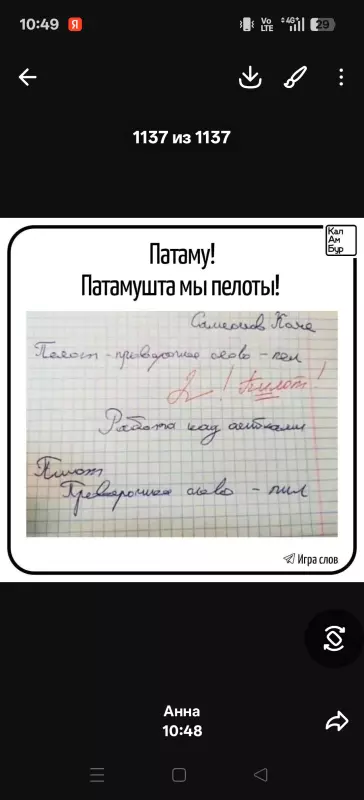 10:49 Я Vo LTE 4G+ 29
1137 из 1137
Кал
Ам
Бур
Патаму!
Патамушта мы пелоты!
Самсонов Коля
Пелот - проверочное слово - пел
2! Пилот!
Работа над ошибками
Пилот
Проверочное слово - пил
Игра слов
Анна
10:48